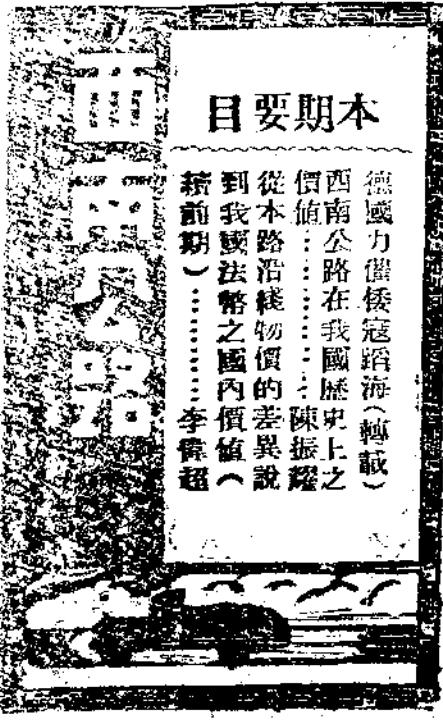 本期要目
德國力催倭寇蹈海（轉載）
西南公路在我國歷史上之
價値：：：：：：陳振耀
從本路沿綫物價的差異說
到我國法幣之國內價値（
續前期）：：：：：：李偉超
西南公路